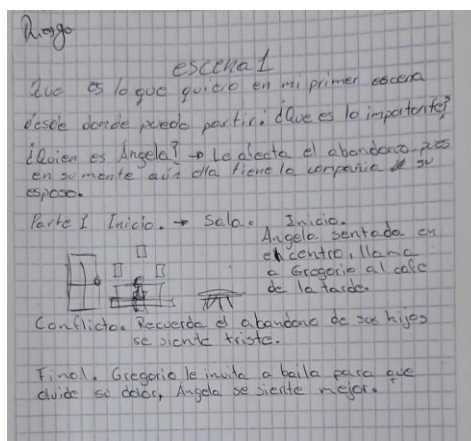 Diego
escena 1
Que es lo que quiero en mi primer escena
desde donde puedo partir. ¿Que es lo importante?
¿Quien es Angela? → Le afecta el abandono pues
en su mente aún ella tiene la compañia su
esposo.
Parte 1 Inicio. → Sala. Inicio.
Angela sentada en
el centro, llama
a Gregorio al cafe
de la tarde.
Conflicto. Recuerda el abandono de sus hijos
se siente triste.
Final. Gregorio le invita a baila para que
olvide su dolor, Angela se siente mejor.